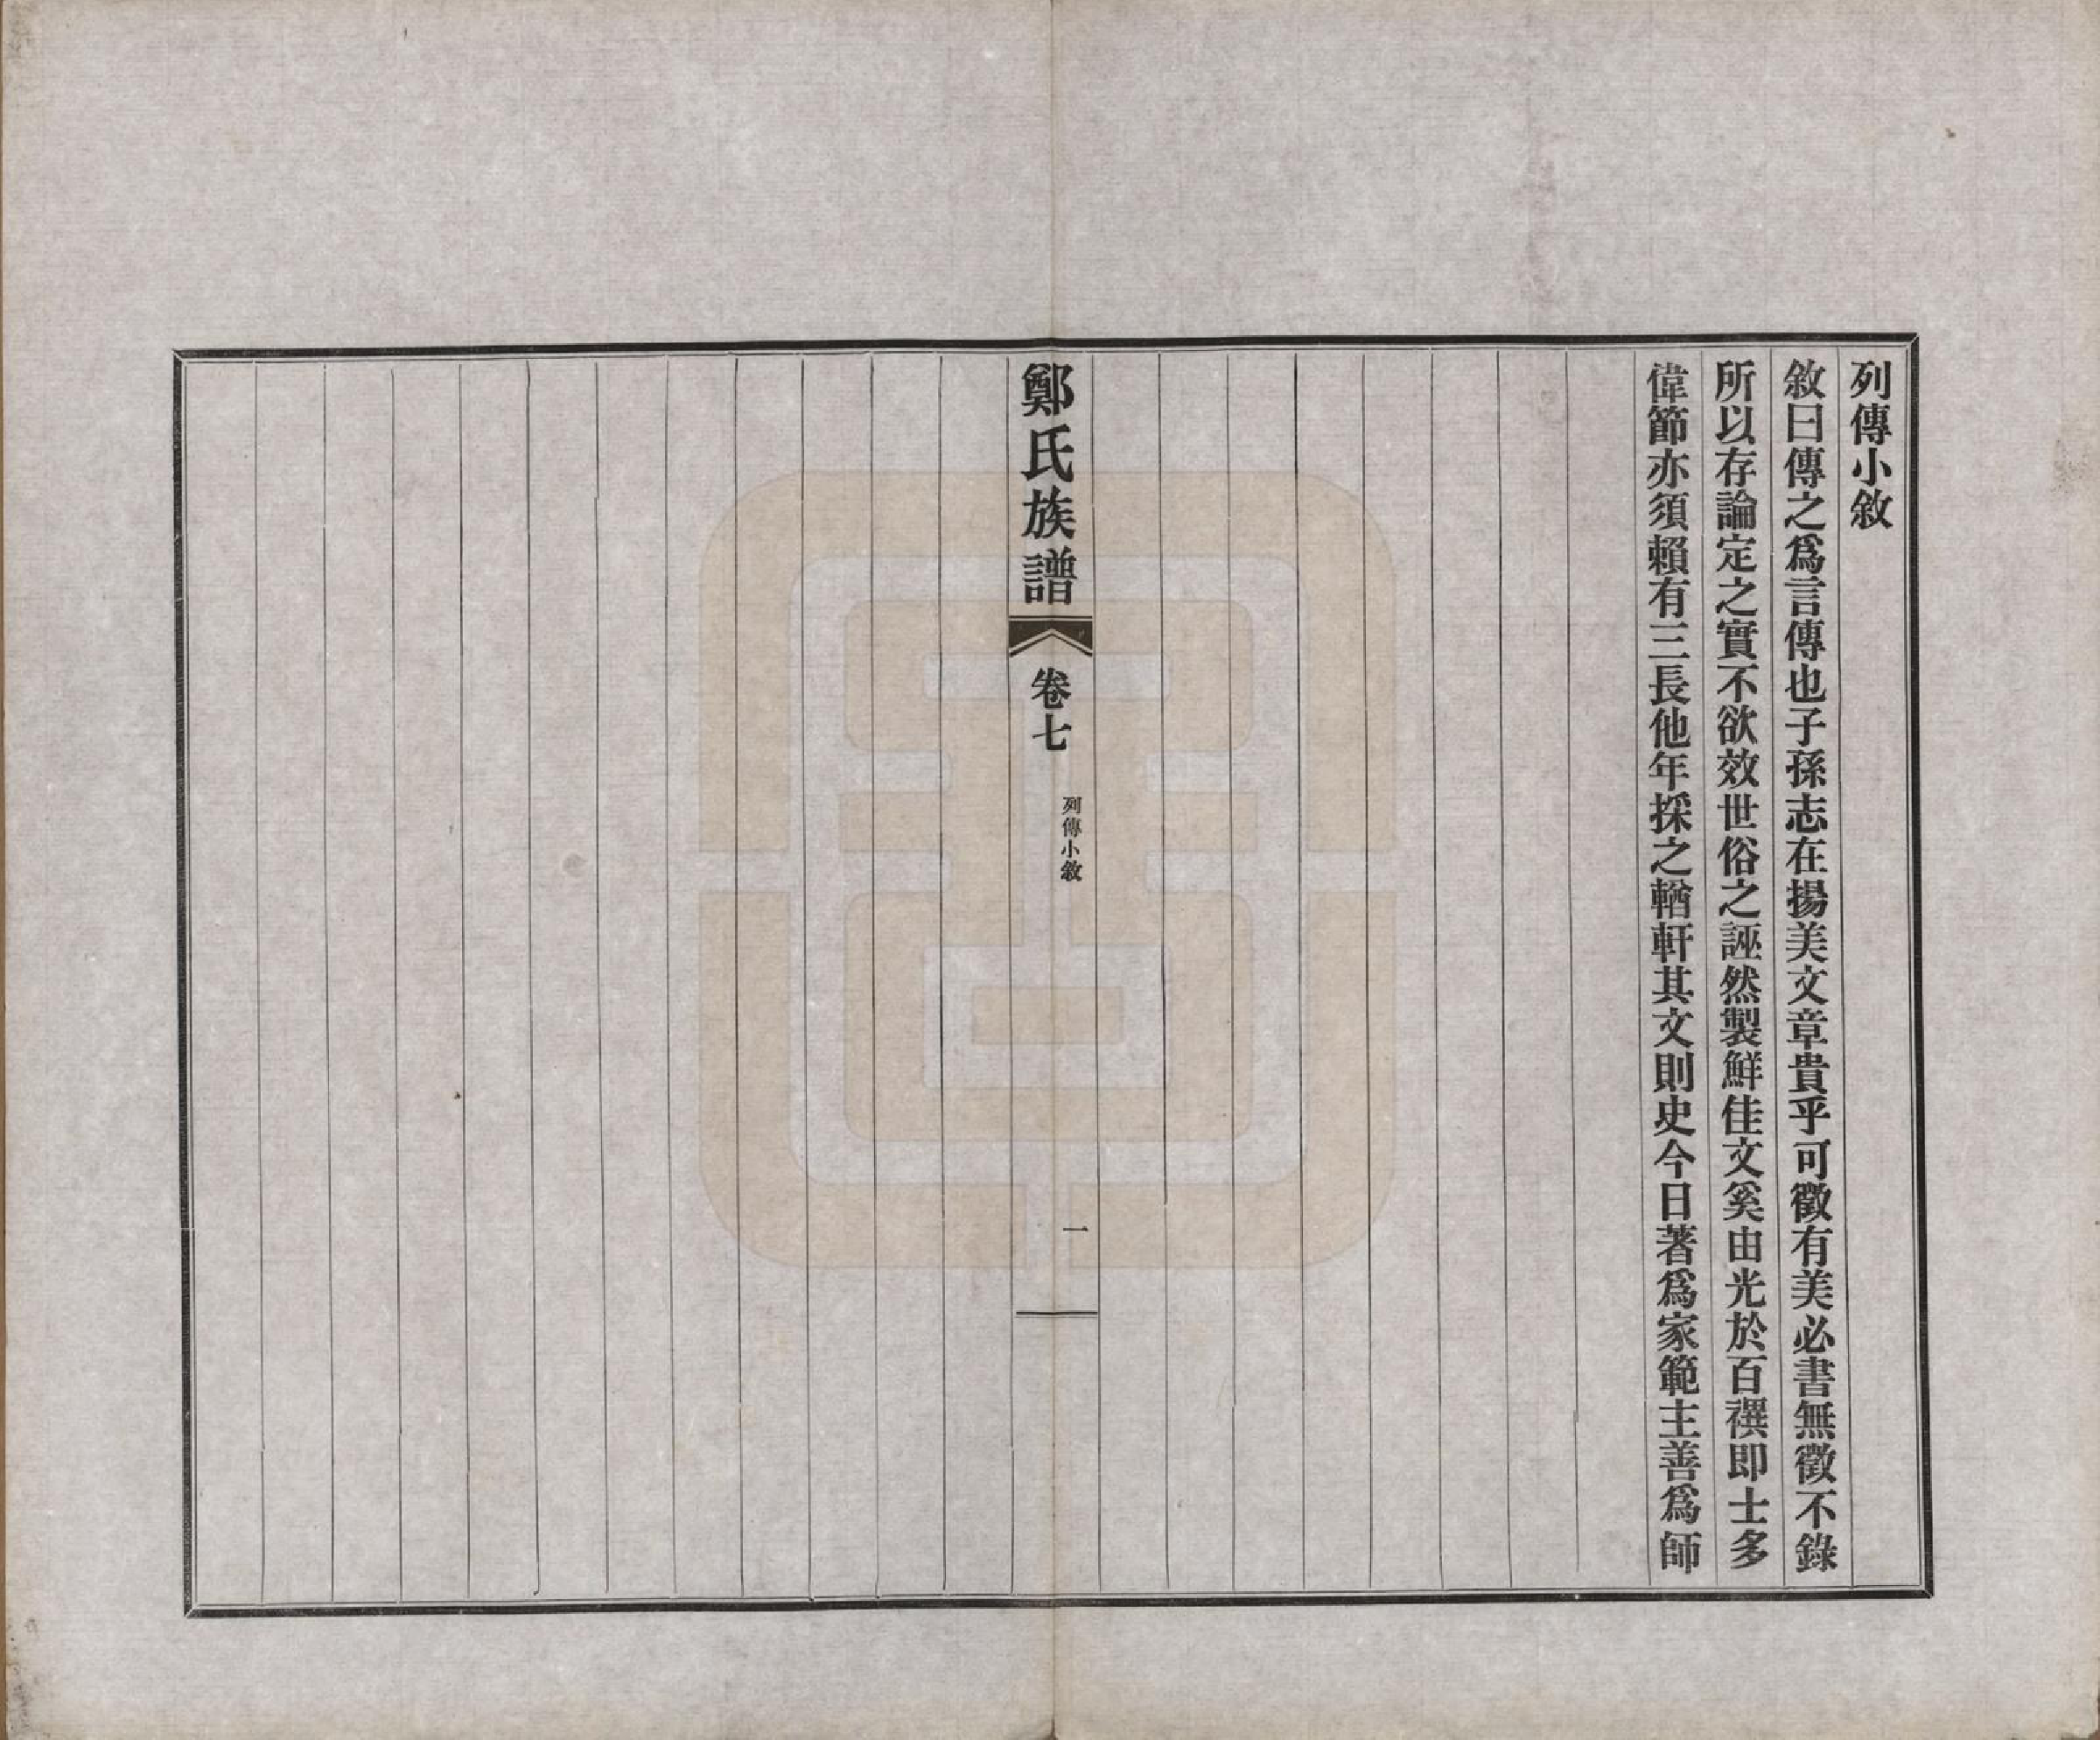 列傳小敘
敘曰傳之爲言傳也子孫志在揚美文章貴乎可徵有美必書無徵不錄
所以存論定之實不欲效世俗之誣然製鮮佳文奚由光於百禩即士多
偉節亦須賴有三長他年採之輶軒其文則史今日著爲家範主善爲師
鄭氏族譜
卷七
列傳小敘
一